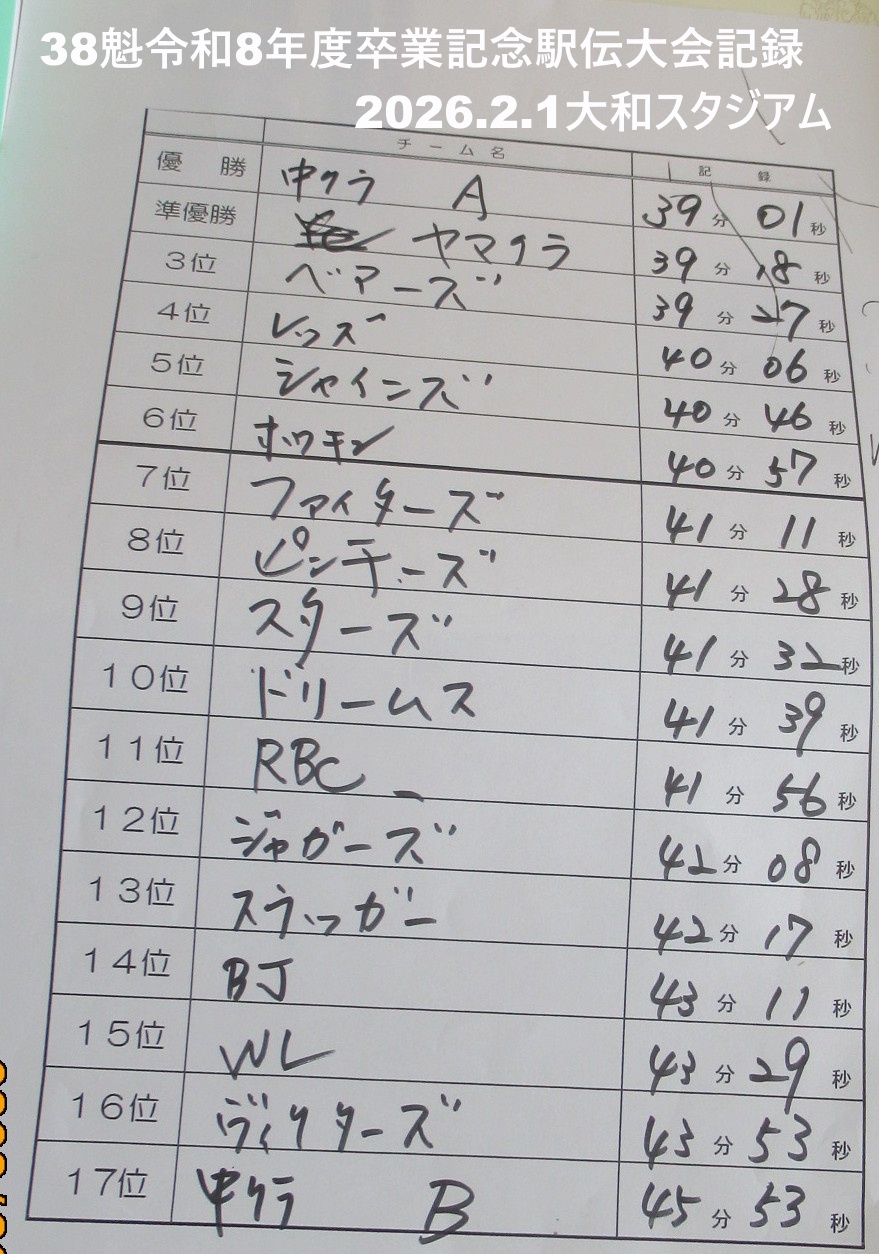 38魁令和8年度卒業記念駅伝大会記録
2026.2.1大和スタジアム
チーム名 記録
優勝 中クラ A 39分01秒
準優勝 ヤマクラ 39分18秒
3位 ベアーズ 39分27秒
4位 レッズ 40分06秒
5位 シャインズ 40分46秒
6位 ホワキン 40分57秒
7位 ファイターズ 41分11秒
8位 ピンチーズ 41分28秒
9位 スターズ 41分32秒
10位 ドリームス 41分39秒
11位 RBC 41分56秒
12位 ジャガーズ 42分08秒
13位 スラッガー 42分17秒
14位 BJ 43分11秒
15位 WL 43分29秒
16位 ヴィクターズ 43分53秒
17位 中クラ B 45分53秒